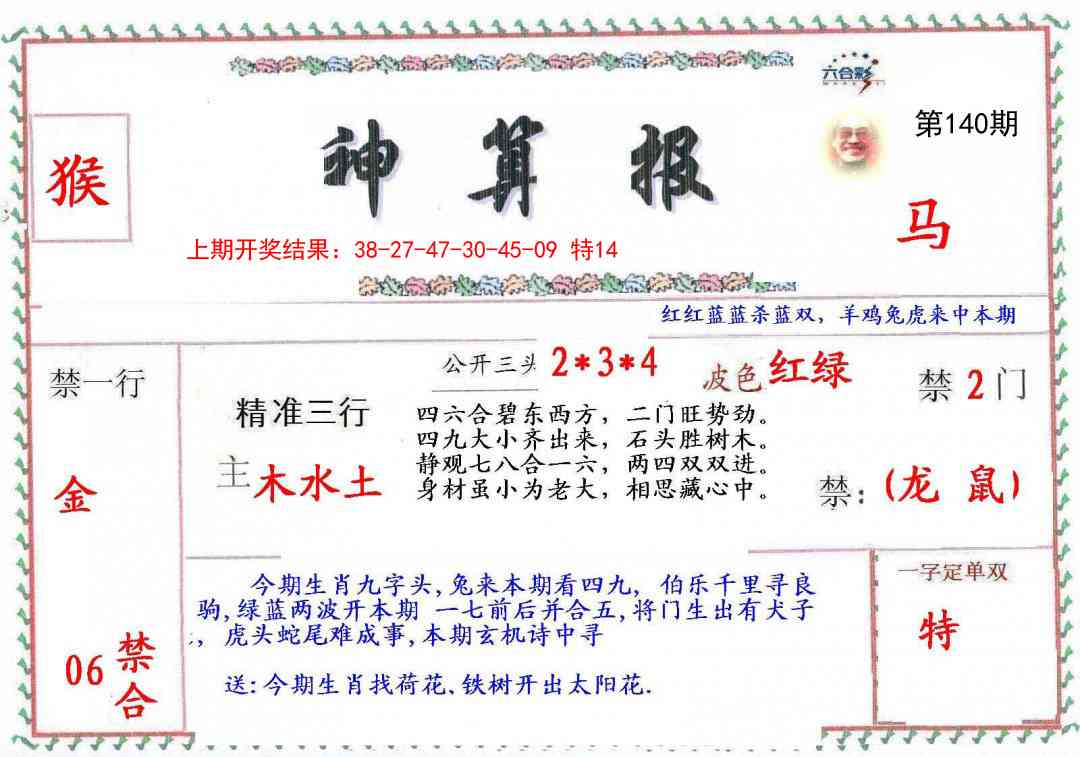 六合彩
第140期
猴
神算报
马
上期开奖结果：38-27-47-30-45-09 特14
红红蓝蓝杀蓝双，羊鸡兔虎来中本期
禁一行
公开三头 2*3*4
波色 红绿
禁 2 门
精准三行
四六合碧东西方，二门旺势劲。
四九大小齐出来，石头胜树木。
静观七八合一六，两四双双进。
身材虽小为老大，相思藏心中。
主 木水土
金
禁：(龙 鼠)
今期生肖九字头,兔来本期看四九, 伯乐千里寻良
驹,绿蓝两波开本期 一七前后并合五,将门生出有犬子
，虎头蛇尾难成事,本期玄机诗中寻
送:今期生肖找荷花、铁树开出太阳花.
一字定单双
特
06 禁合